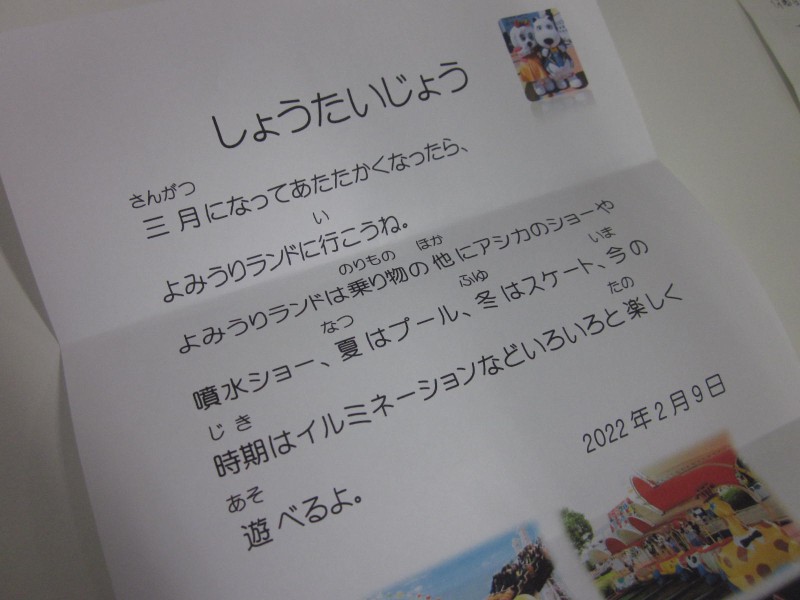 しょうたいじょう
さんがつ
三月になってあたたかくなったら、
い
よみうりランドに行こうね。
のりもの ほか
よみうりランドは乗り物の他にアシカのショーや
なつ ふゆ いま
噴水ショー、夏はプール、冬はスケート、今の
じき たの
時期はイルミネーションなどいろいろと楽しく
あそ
遊べるよ。
2022年2月9日